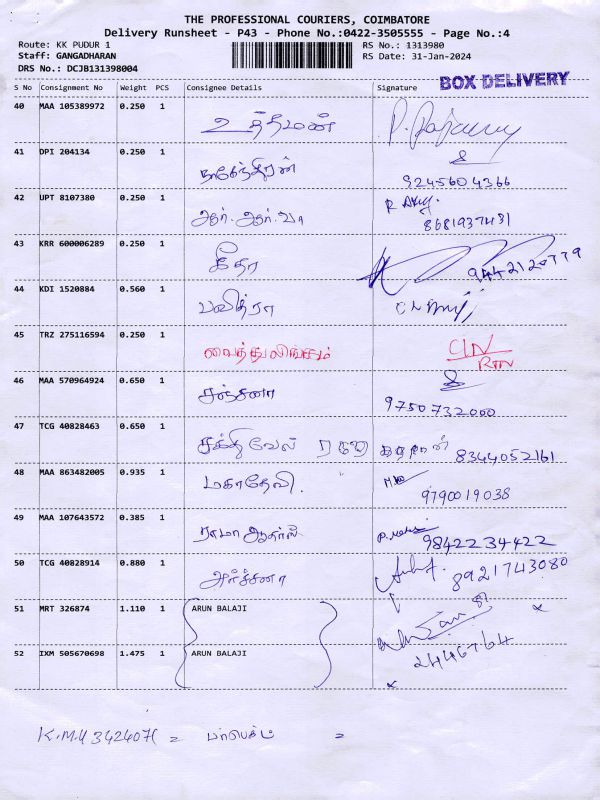 THE PROFESSIONAL COURIERS, COIMBATORE
Delivery Runsheet - P43 - Phone No.:0422-3505555 - Page No.:4
Route: KK PUDUR 1 RS No.: 1313980
Staff: GANGADHARAN RS Date: 31-Jan-2024
DRS No.: DCJB131398004 BOX DELIVERY
S No Consignment No Weight PCS Consignee Details Signature
40 MAA 105389972 0.250 1
உத்தீமன்
41 DPI 204134 0.250 1
9245604366
42 UPT 8107380 0.250 1
ஆர்.ஆர்.
8681937431
43 KRR 600006289 0.250 1
கீதா 9442120779
44 KDI 1520884 0.560 1
பவித்ரா
45 TRZ 275116594 0.250 1
வைத்துலிங்கம்
RTN
46 MAA 570964924 0.650 1
சஞ்சனா 9750732000
47 TCG 40828463 0.650 1
சக்திவேல் 8344052161
48 MAA 863482005 0.935 1
மகாதேவி. 9790019038
49 MAA 107643572 0.385 1
ராமா 9842234422
50 TCG 40828914 0.880 1
அர்ச்சனா 8921743080
51 MRT 326874 1.110 1 ARUN BALAJI
52 IXM 505670698 1.475 1 ARUN BALAJI
2446764
K.M.U 3424071 =  =